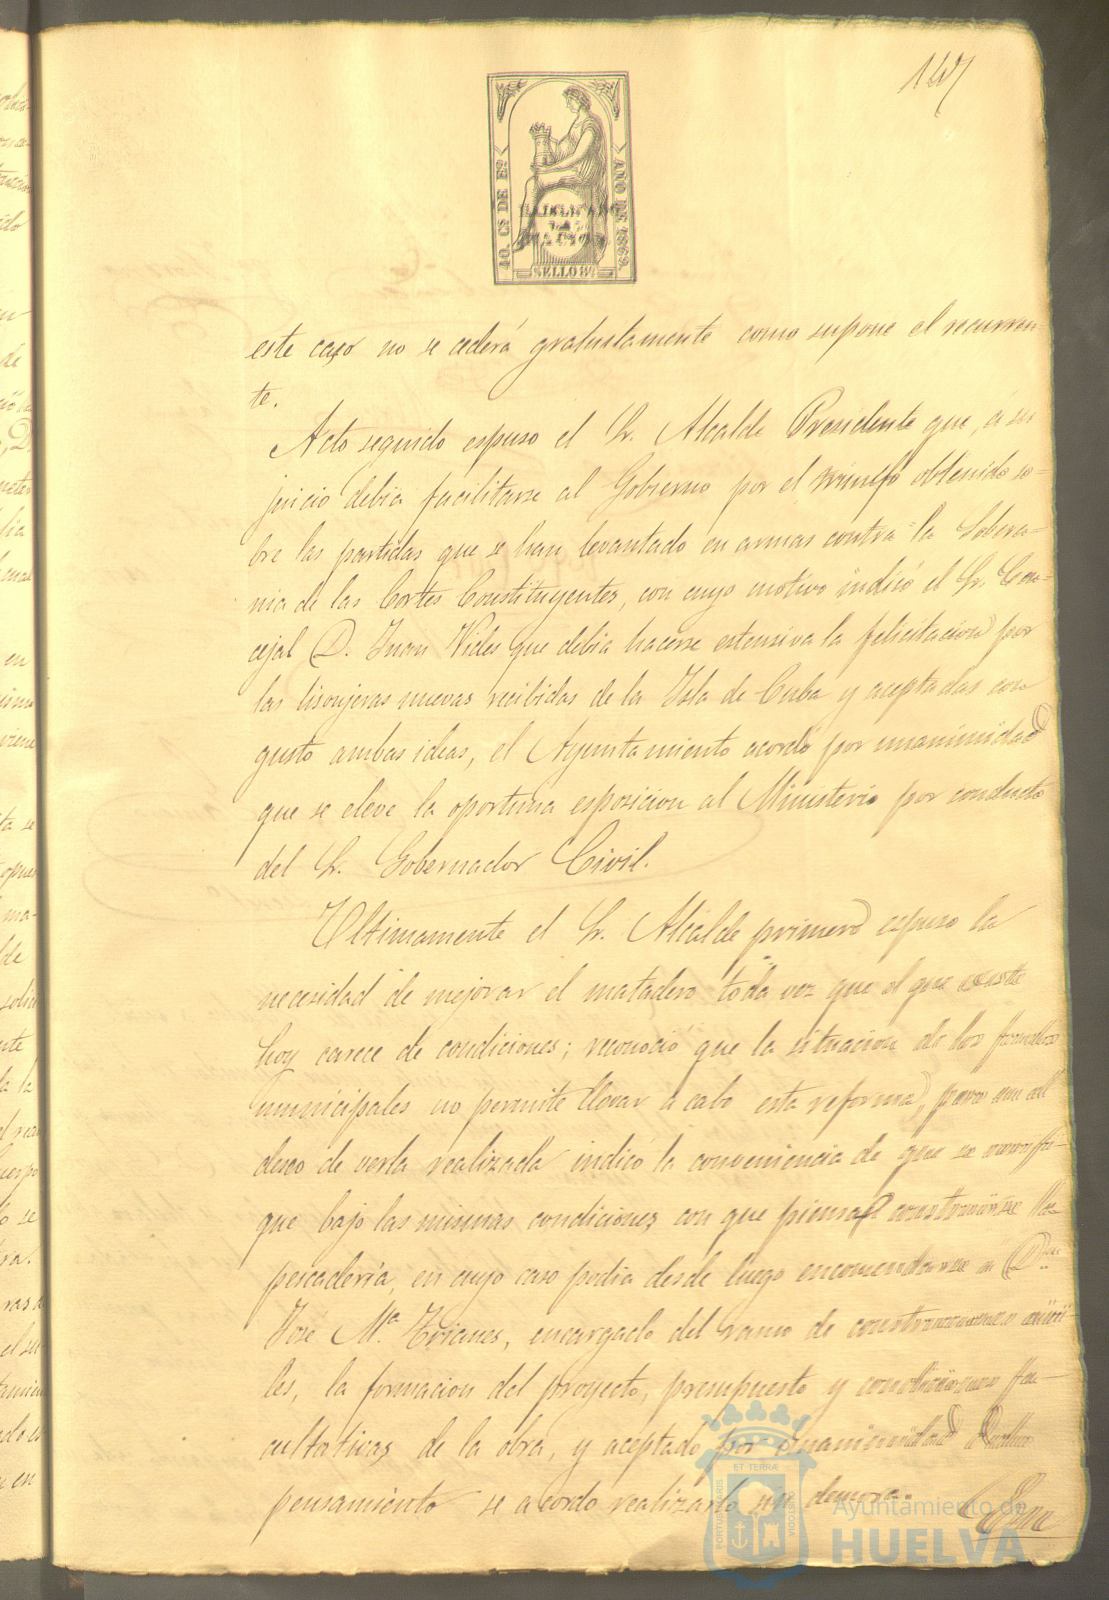 147
10. Cs DE Eº
AÑO DE 1869
HABILITADO
POR LA
NACION
SELLO 8º
este caso no se cederá gratuitamente como supone el recurren
te.
Acto seguido espuso el Sr. Alcalde Presidente que, á su
juicio debia facilitarse al Gobierno por el triunfo obtenido so-
bre las partidas que se han levantado en armas contra la Sobera-
nia de las Cortes Constituyentes, con cuyo motivo indicó el Sr. Con-
cejal D. Juan Vides que debia hacerse estensiva la felicitacion por
las lisonjeras nuevas recibidas de la Isla de Cuba y aceptadas con
gusto ambas ideas, el Ayuntamiento acordó por unanimidad
que se eleve la oportuna esposicion al Ministerio por conducto
del Sr. Gobernador Civil.
Ultimamente el Sr. Alcalde primero espuso la
necesidad de mejorar el matadero toda vez que el que existe
hoy carece de condiciones; reconoció que la situacion de los fondos
municipales no permite llevar á cabo esta reforma, pero en el
deseo de verla realizada indicó la conveniencia de que se
que bajo las mismas condiciones con que piensa construirse la
pescaderia, en cuyo caso podia desde luego encomendarse á D.
José Mª. Trianes, encargado del ramo de construcciones civi
les, la formacion del proyecto, presupuesto y condiciones fa-
cultativas de la obra, y aceptado por unanimidad
pensamiento se acordo realizarlo sin demora.
PORTUS MARIS
ET TERRÆ
CUSTODIA
Ayuntamiento de
HUELVA